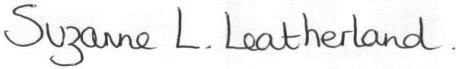 Suzanne L. Leatherland.